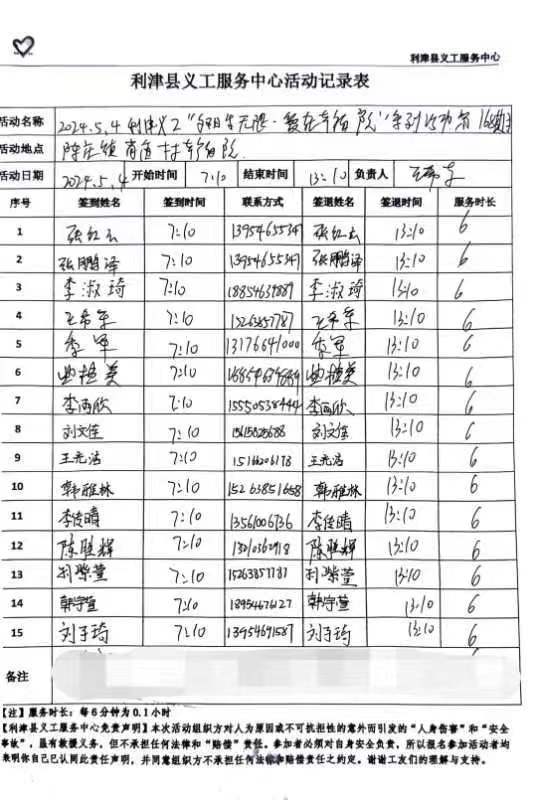 利津县义工服务中心
利津县义工服务中心活动记录表
活动名称 2024.5.4 利津义工“夕阳无限·爱在幸福院”系列活动第168期
活动地点 陈庄镇 村幸福院
活动日期 2024.5.4 开始时间 7:10 结束时间 13:10 负责人 王希军
序号 签到姓名 签到时间 联系方式 签退姓名 签退时间 服务时长
1 张红云 7:10 张红云 13:10 6
2 张鹏译 7:10 张鹏译 13:10 6
3 李淑琦 7:10 李淑琦 13:10 6
4 王希军 7:10 15263857787 王希军 13:10 6
5 李军 7:10 13176641000 李军 13:10 6
6 7:10 13:10 6
7 李雨欣 7:10 15550538444 李雨欣 13:10 6
8 刘文佳 7:10 刘文佳 13:10 6
9 王光洁 7:10 15166206178 王光洁 13:10 6
10 韩雅林 7:10 15263851658 韩雅林 13:10 6
11 李俊晴 7:10 13561006736 李俊晴 13:10 6
12 陈胜辉 7:10 陈胜辉 13:10 6
13 7:10 15263857787 13:10 6
14 韩宇萱 7:10 18954676127 韩宇萱 13:10 6
15 刘子琦 7:10 13954691587 刘子琦 13:10 6
备注
【注】服务时长：每6分钟为0.1小时
【利津县义工服务中心免责声明】本次活动组织方对人为原因或不可抗拒性的意外而引发的“人身伤害”和“安全
事故”，虽有救援义务，但不承担任何法律和“赔偿”责任。参加者必须对自身安全负责，所以报名参加活动者均
表明你自己已认同此责任声明，并同意组织方不承担任何法律和赔偿责任之约定。谢谢工友们的理解与支持。